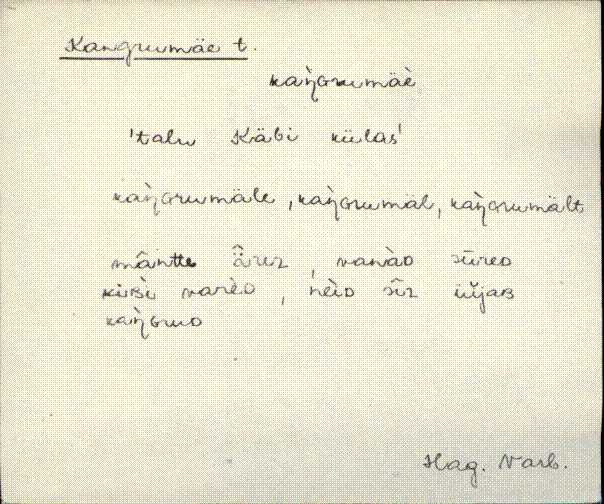 Kangrumäe t.
kaŋ̀Grumäè
'talu Käbi külas'
kaŋ̀Grumäle, kaŋ̀Grumäl, kaŋ̀Grumält
mântte ǟrez, vanàD sūreD
kiβ̀i varèD, nèiD
kaŋ̀GruD
Hag. Varb.